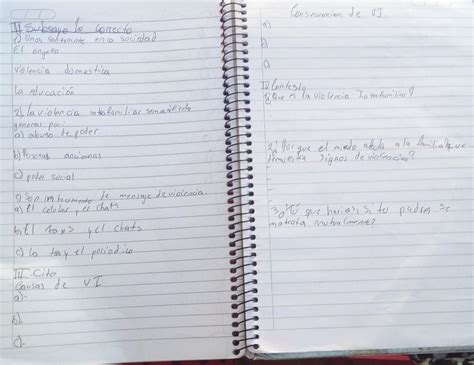 II Subraye lo correcto
1) Una en la sociedad
El engaño
violencia domestica
la educación
2) La violencia intrafamiliar se manifiesta
generas por:
a) abuso de poder
b) Personas ancianas
c) poder social
3) Son instrumento de mensaje de violencia
a) El celular y el chats
b) El y el chats
c) la tex y el periodico
III Cita
Causas de VI
a)-
b).
c).
Consecuencia de VI
a)
b)
c)
IV Contesta
1¿Que es la violencia Intrafamiliar?
2¿Por que el miedo a la familia que
demuestra signos de violencia?
3¿Tú que harias si tu padres se
matrata mutualmente?